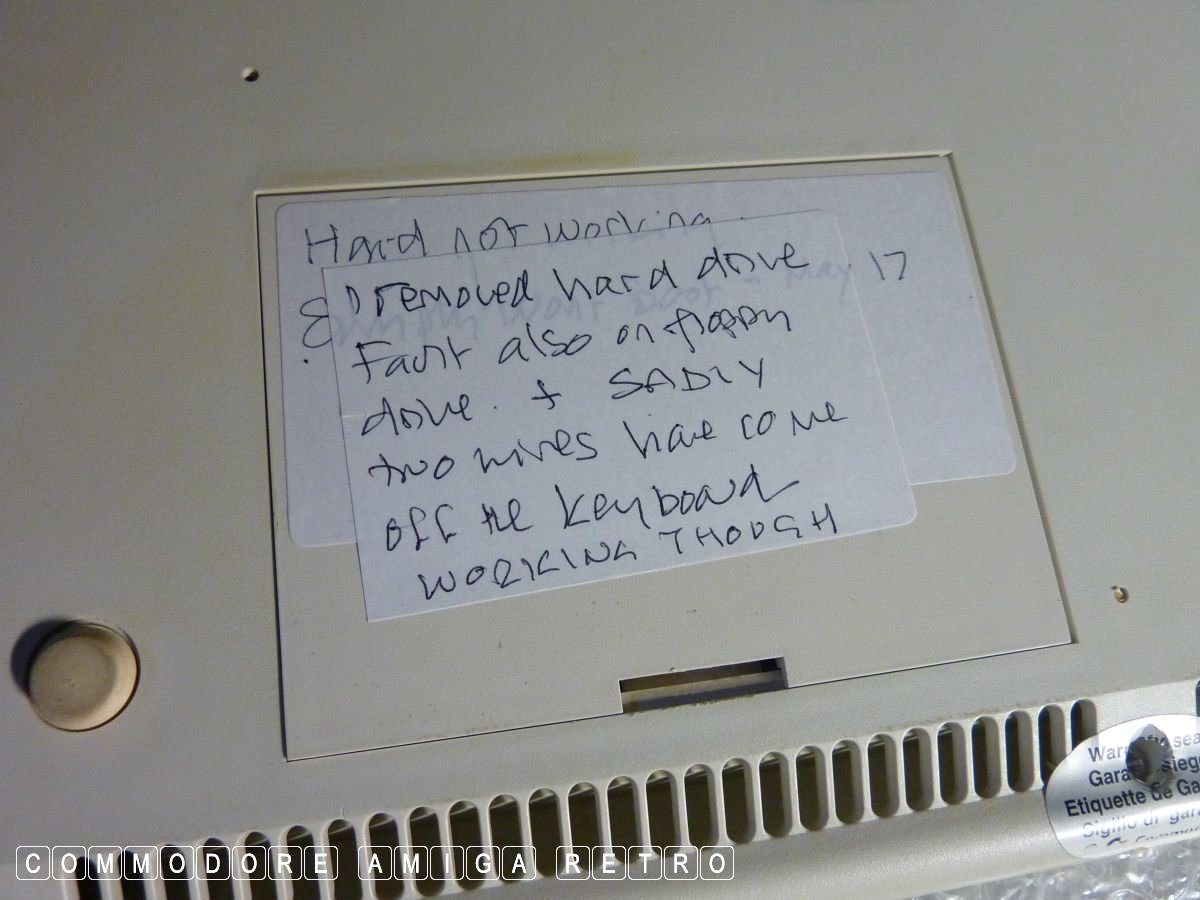 Hard not working
&
17
removed hard drive
Fault also on floppy
drive. + SADLY
two wires have come
off the keyboard
WORKING THOUGH
Garan siege
Etiquette de Ga
COMMODORE AMIGA RETRO